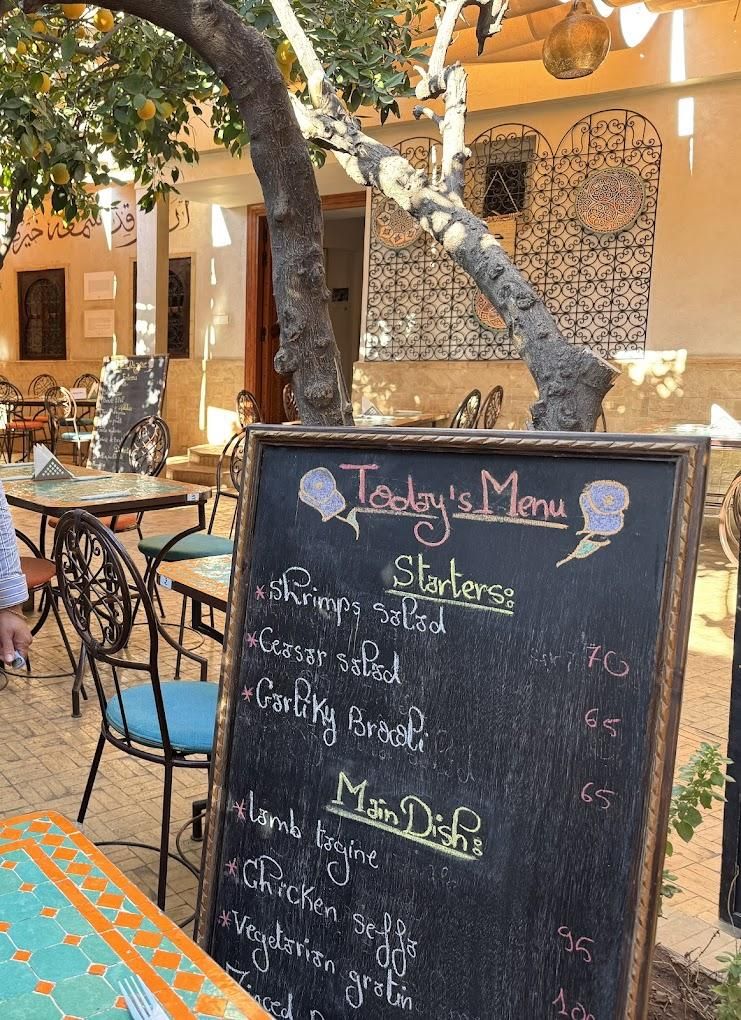 Today's Menu
Starters:
*Shrimps salad 70
*Ceasar salad 65
*Garliky Brocoli 65
Main Dish:
*lamb tagine 95
*Chicken seffa
*Vegetarian gratin